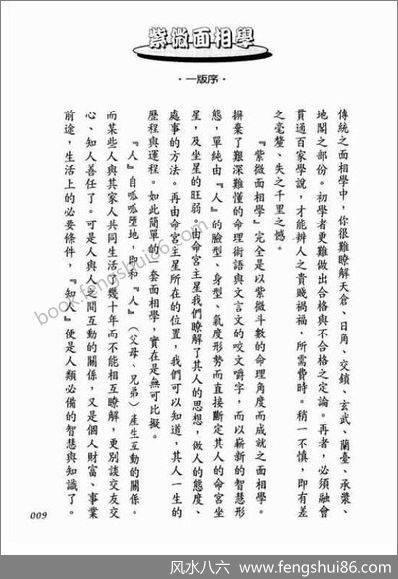 紫微面相學
·一版序·
傳統之面相學中，你很難瞭解天倉、日角、交鎖、玄武、蘭臺、承漿、
地閣之部份。初學者更難做出合格與不合格之定論。再者，必須融會
貫通百家學說，才能辨人之貴賤禍福，所需費時。稍一不慎，即有差
之毫釐、失之千里之憾。
『紫微面相學』完全是以紫微斗數的命理角度而成就之面相學。
摒棄了艱深難懂的命理術語與文言文的咬文嚼字，而以嶄新的智慧形
態，單純由『人』的臉型、身型、氣度形勢而直接斷定其人的命宮坐
星，及坐星的旺弱。由命宮主星我們瞭解了其人的思想，做人的態度、
處事的方法。再由命宮主星所在的位置，我們可以知道，其人一生的
歷程與運程。如此簡單的一套面相學，實在是無可比擬。
『人』自呱呱墮地，即和『人』（父母、兄弟）產生互動的關係。
而某些人與其家人共同生活了幾十年而不能相互瞭解，更別談交友交
心、知人善任了。可是人與人之間互動的關係，又是個人財富、事業
前途，生活上的必要條件，『知人』便是人類必備的智慧與知識了。
009
book.fengshui86.com
风水八六 www.fengshui86.com